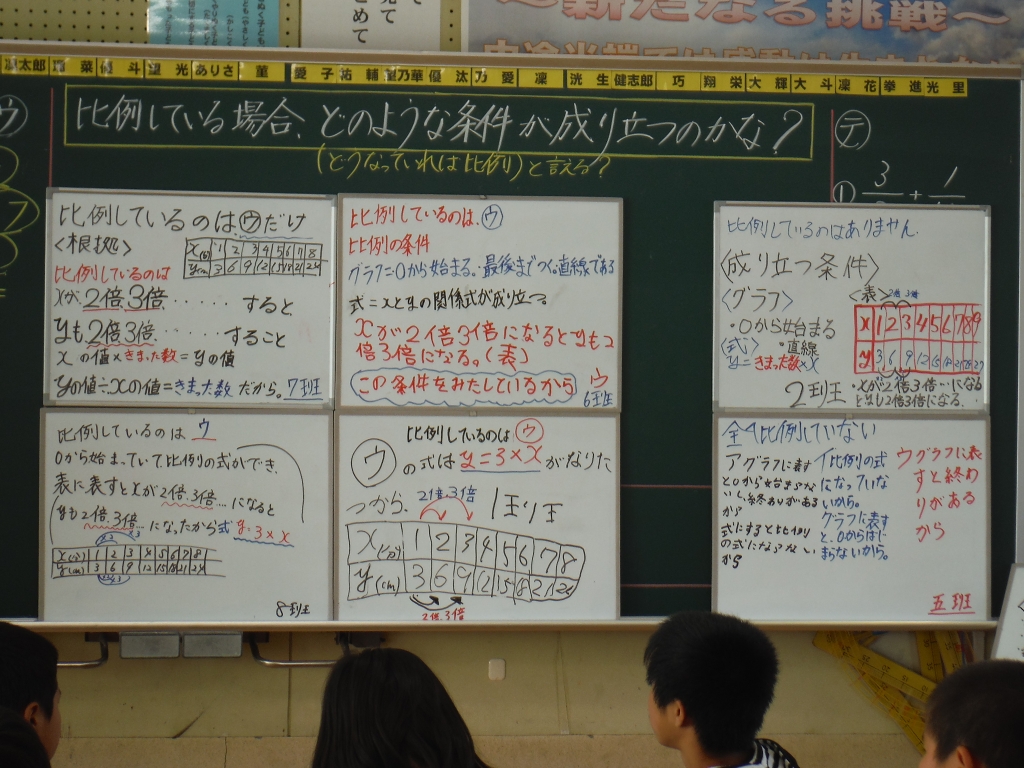 見て
とめて
〜新たなる挑戦〜
凛太郎 瑠菜 優斗 望光 ありさ 菫 愛子 祐輔 望乃華 優汰 乃愛 凜 洸生 健志郎 巧 翔栄 大輝 大斗 凜花 拳進 光里
比例している場合、どのような条件が成り立つのかな？
(どうなっていれば比例)と言える？
ウ
テ
①
3
1
+
比例しているのは、ウだけ
<根拠>
x(分) 1 2 3 4 5 6 7 8
y(cm) 3 6 9 12 15 18 21 24
比例しているのは
xが2倍、3倍、・・・・・すると、
yも2倍、3倍、・・・・・すること
xの値×きまった数=yの値
yの値÷xの値=きまった数だから。7班
比例しているのは、ウ
比例の条件
グラフ=0から始まる。最後までつく。直線である
式=xとyの関係式が成り立つ
xが2倍3倍になるとyも2
倍3倍になる。(表)
この条件をみたしているから ウ
6班
比例しているのはありません。
<成り立つ条件>
<グラフ>
・0から始まる
・直線
<式>
y=きまった数×x
<表> 2倍 3倍
x 1 2 3 4 5 6 7 8 9
y 3 6 9 12 15 18 21 24 27
2倍 3倍
・xが2倍3倍…になる
とyも2倍3倍になる。
2班
比例しているのは ウ
0から始まっていて、比例の式ができ、
表に表すとxが2倍、3倍…になると
yも2倍、3倍…になったから式 y=3×x
x(分) 1 2 3 4 5 6 7 8
y(cm) 3 6 9 12 15 18 21 24
8班
比例しているのは ウ
ウ の式は y=3×x がなりた
つから、 2倍 3倍 1班
x(分) 1 2 3 4 5 6 7 8
y(cm) 3 6 9 12 15 18 21 24
2倍 3倍
全く比例していない
ア グラフに表す
と0から始まらな
いし終わりがある
から
式にすると比例
の式にならない
から
イ 比例の式
になっていな
いから。
グラフに表す
と、0からはじ
まらないから。
ウ グラフに表
すと終わ
りがある
から
五班